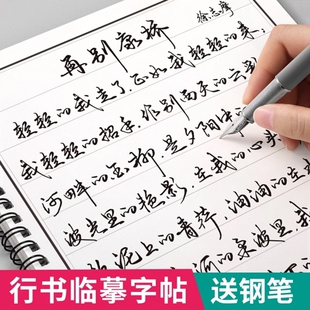 再别康桥
徐志摩
轻轻的我走了，正如我轻轻的来，
我轻轻的招手，作别西天的云彩
河畔的金柳，是夕阳中
波光里的艳影，在我的心头
泥上的青荇，油油的在
的柔波里我
行书临摹字帖 送钢笔